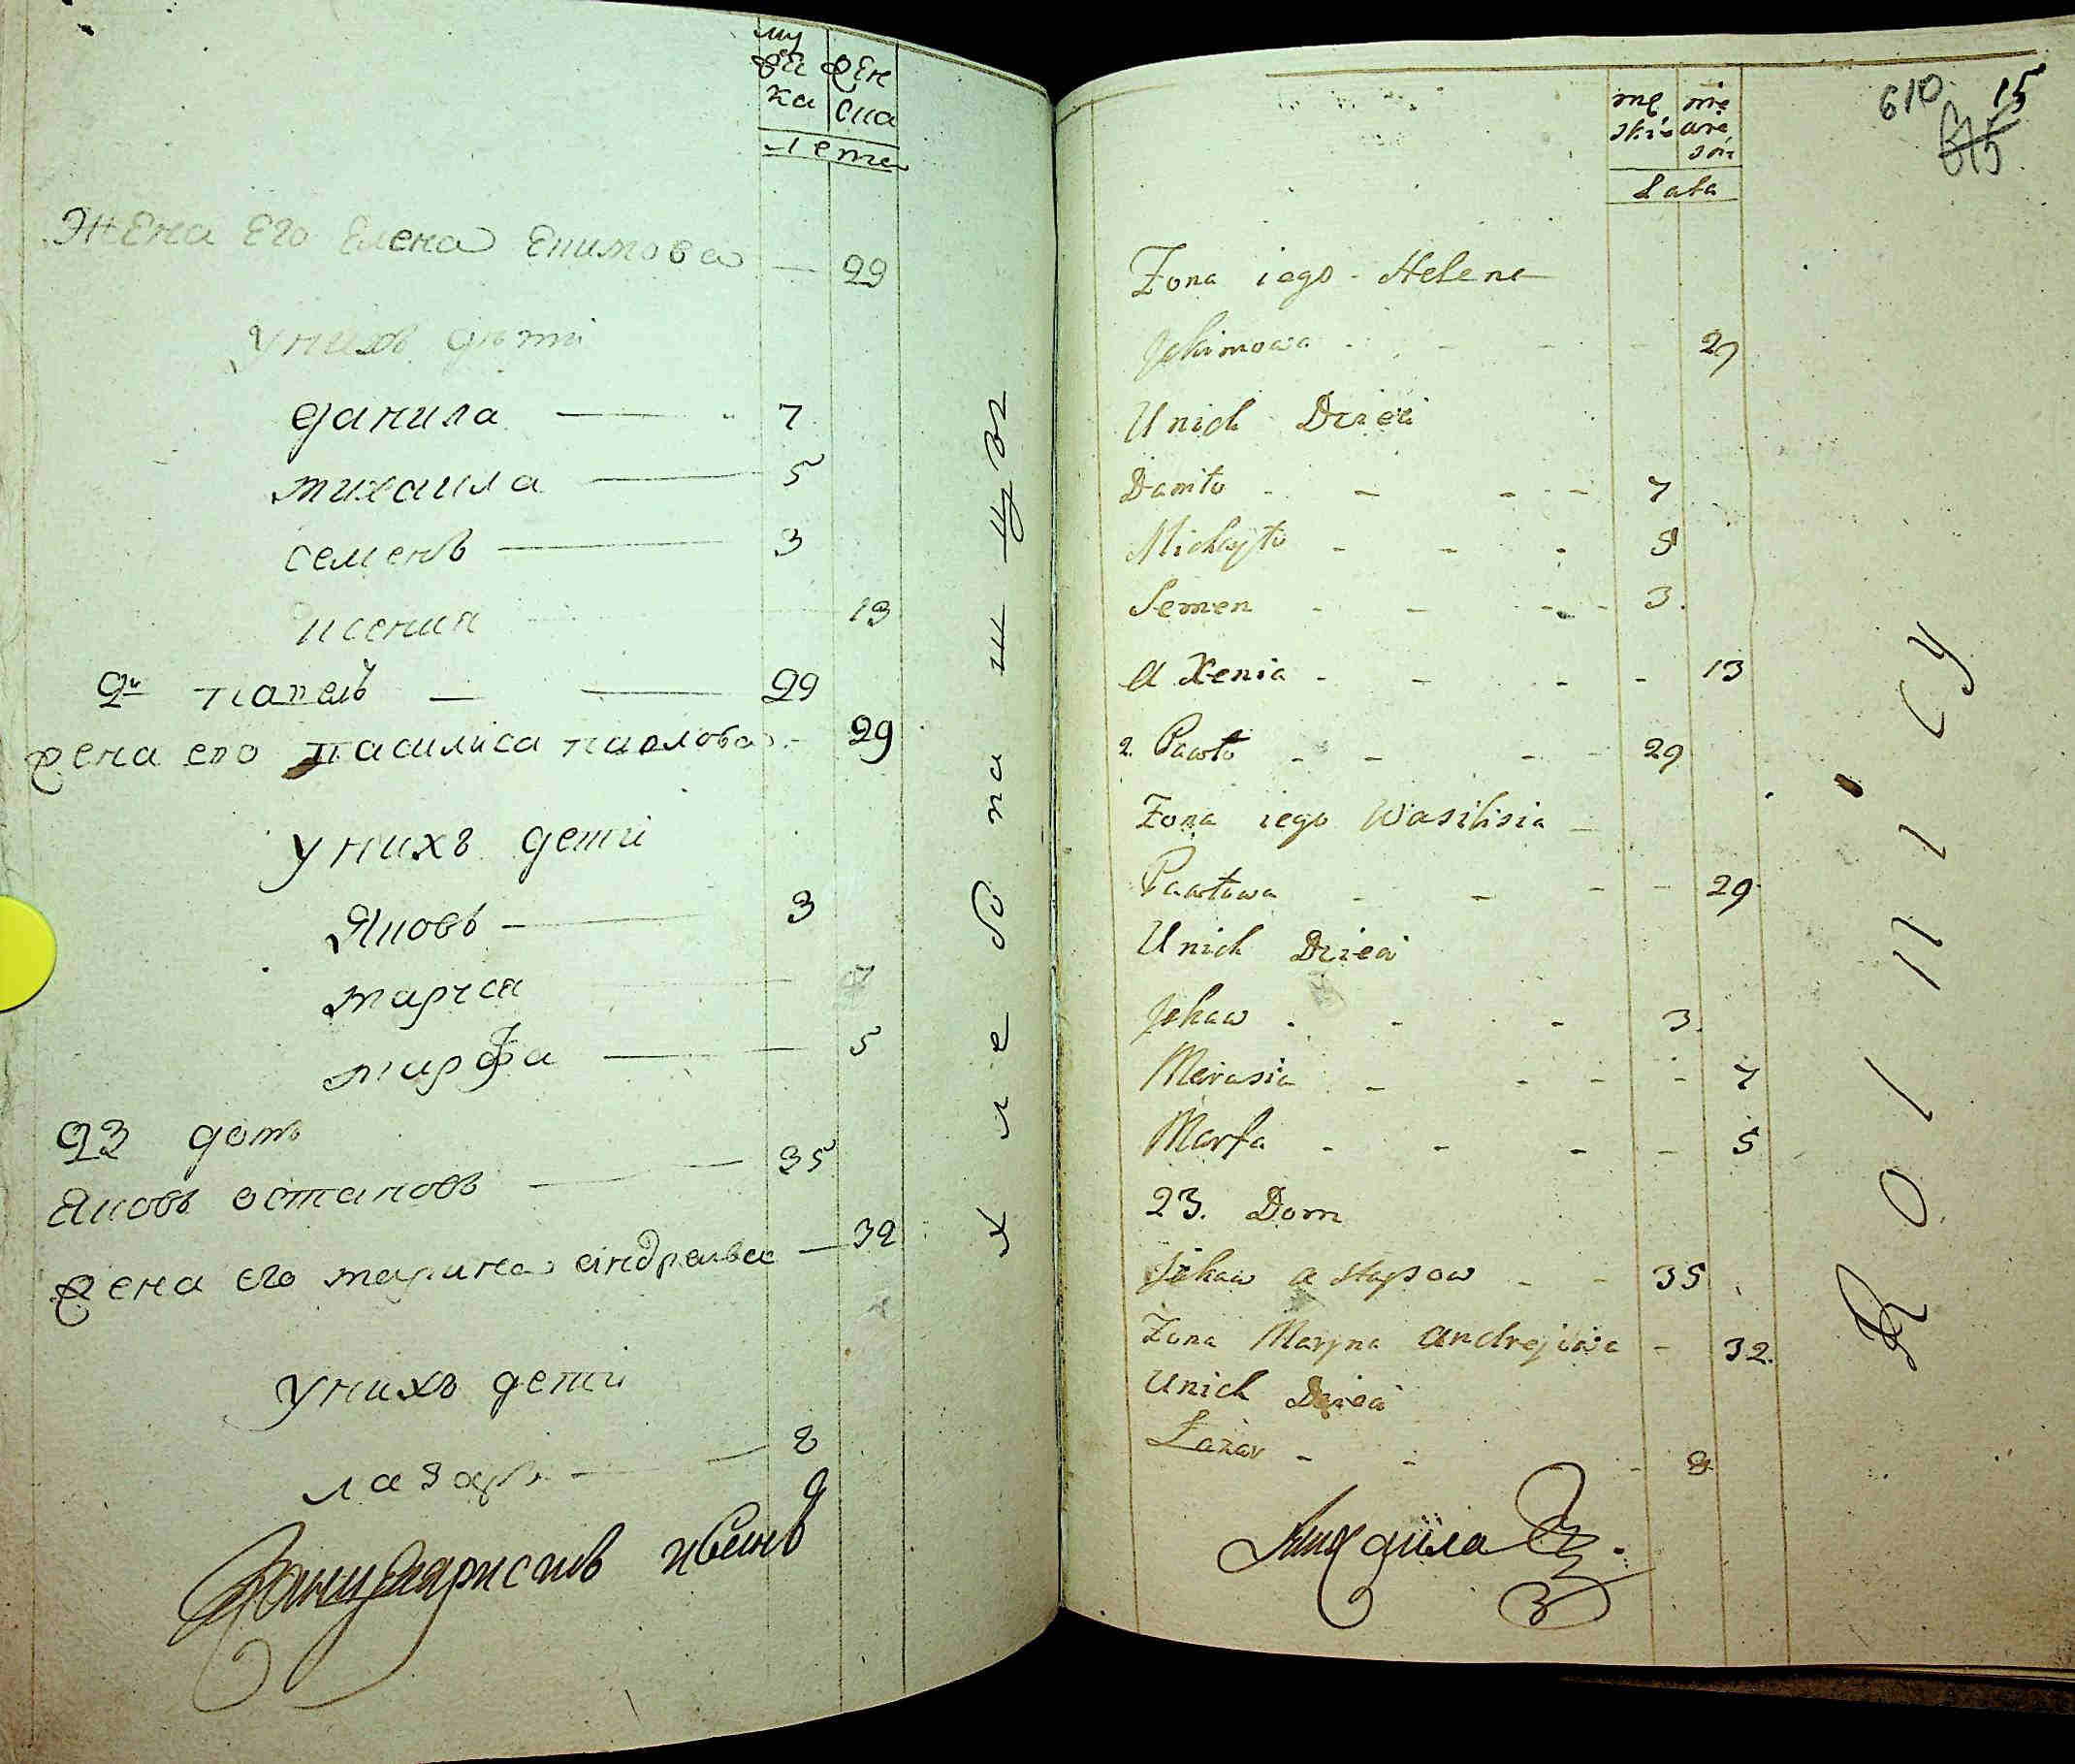 му
жен
ска
сна
Лета
Жена Его Елена Екимова — 29
У нихъ дѣти
данила — 7
михаила — 5
семенъ — 3
ксения 13
2й павелъ — — 29
жена его василиса павлова - 29
У нихъ дети
Яковъ — 3
марися 7
марфа — 5
23 домъ
Яковъ остаповъ — 35
жена его марина андреива — 32
У нихъ дети
лазарь — 8
хлебопашцы
610 15
615
mę skie
Lata
Zona iego Helena
Jekimowa - - - 29
Unich Dzieci
Daniło - - - 7
Michayło - - - 5
Semen - - - 3.
a Xenia - - - - 13
2. Pawło - - - 29
Zona iego Wasilisia
Pawłowa - - - - 29
Unich Dzieci
Jakow - - - 3.
Merasia - - - - 7
Marfa - - - - 5
23. Dom
Jakow astapow - - 35
Zona Maryna andrejewa - 32.
Unich Dzieci
Łazar - - - 8
Михаила
Rolnicy